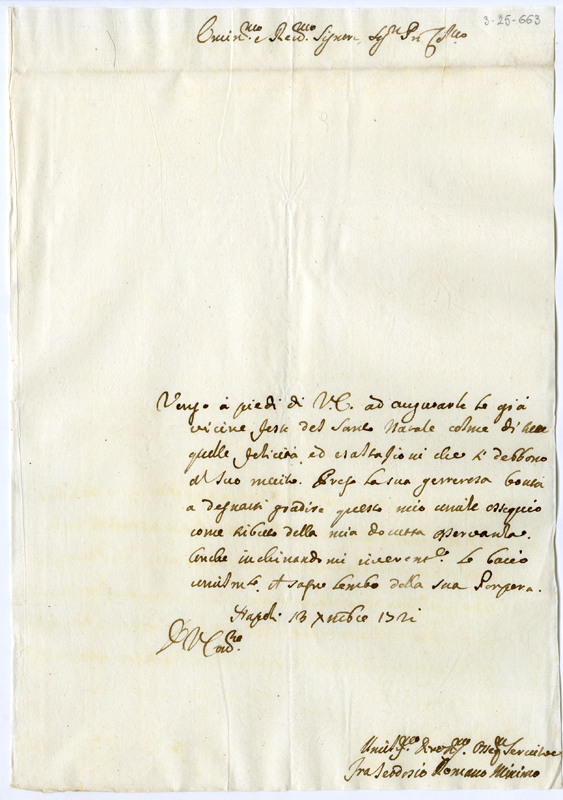 3-25-663
Emin.mo e Reu.mo Signor, Sig.r Pn
Vengo à piedi di V.E. ad augurarle le già
vicine feste del Santo Natale colme di
quelle felicità, ed esaltazioni che si debbono
al suo merito. Prego la sua generosa bontà
a degnarsi gradire questo mio umile ossequio
come tributo della mia dovuta osservanza.
Anche inchinandomi riverent.e le bacio
umilm.te il sagro lembo della sua Porpora.
Napoli 13 Xmbre 1721
Umil.mo Deuot.mo Osseq. Seruitore
Fra Teodosio Romano Minimo